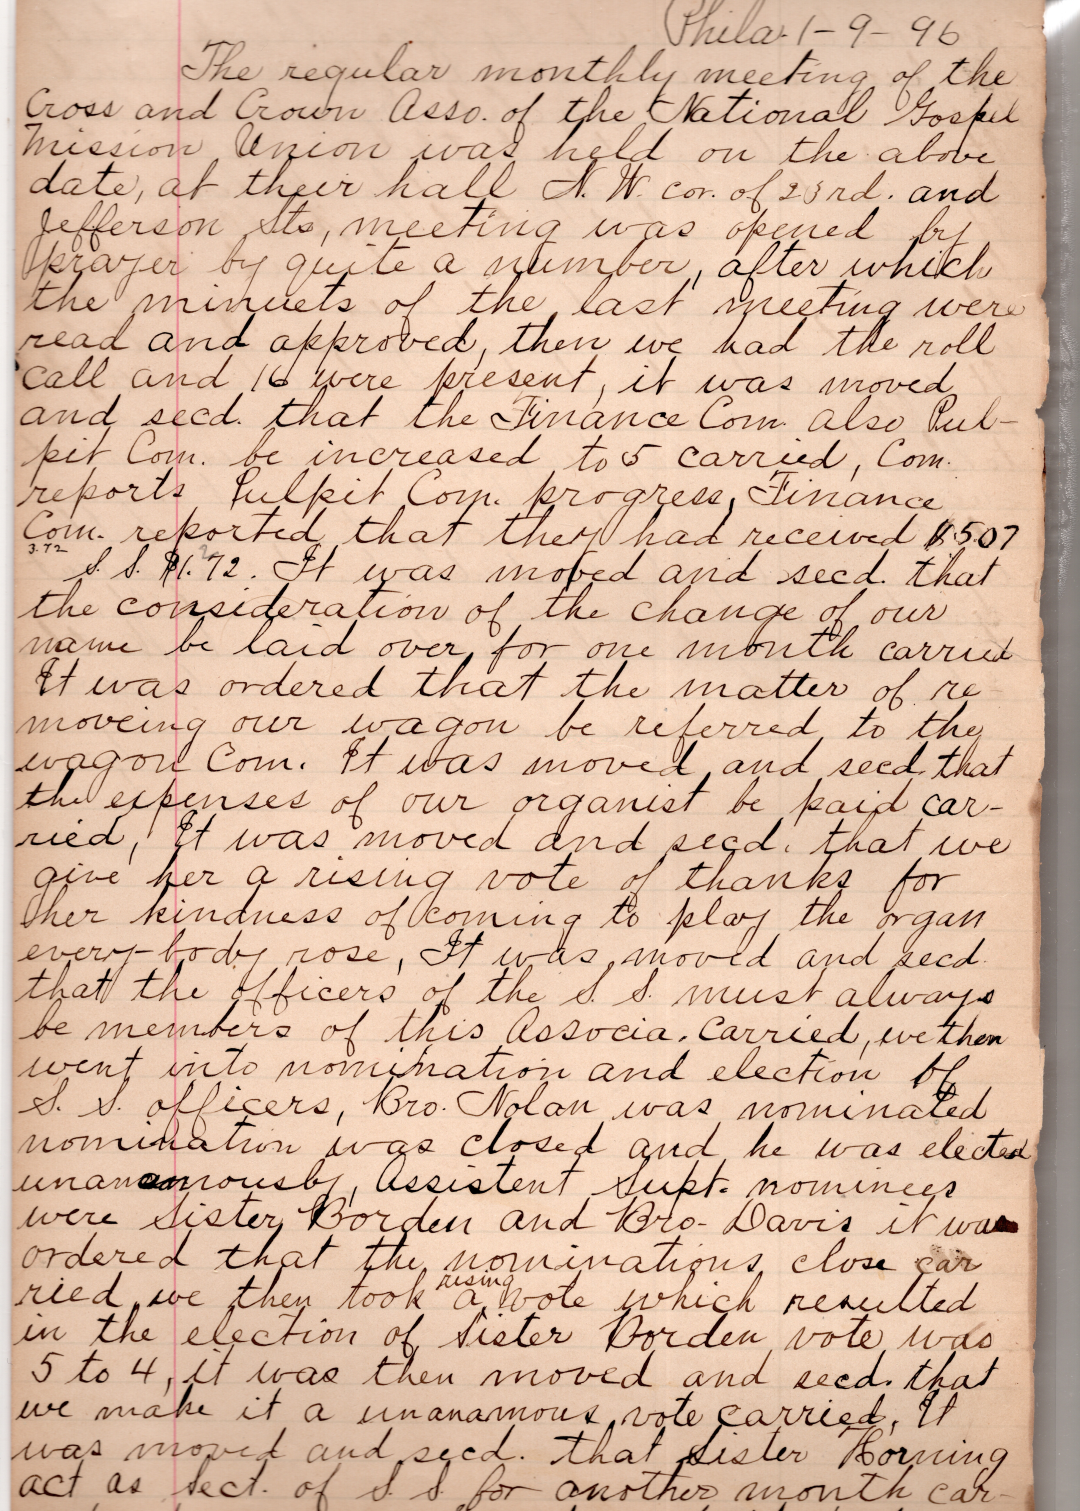 Phila 1-9-96
The regular monthly meeting of the
Cross and Crown Asso. of the National Gospel
Mission Union was held on the above
date, at their hall N. W. cor. of 23rd. and
Jefferson Sts, meeting was opened by
prayer by quite a number, after which
the minuets of the last meeting were
read and approved, then we had the roll
call and 16 were present, it was moved
and secd. that the Finance Com. also Pul-
pit Com. be increased to 5 carried, Com.
reports Pulpit Com. progress, Finance
Com. reported that they had received $5.07
3.72
S. S. $1.72. It was moved and secd. that
the consideration of the change of our
name be laid over for one month carried
It was ordered that the matter of re
moveing our wagon be referred to the
wagon Com. It was moved and secd. that
the expenses of our organist be paid car-
ried, It was moved and secd. that we
give her a rising vote of thanks for
her kindness of coming to play the organ
every-body rose, It was moved and secd.
that the officers of the S. S. must always
be members of this Associa. Carried, we then
went into nomination and election of
S. S. officers, Bro. Nolan was nominated
nomination was closed and he was elected
unanamously, Assistent Supt. nominees
were Sister Borden and Bro- Davis it was
ordered that the nominations close car
ried we then took a rising vote which resulted
in the election of Sister Borden vote was
5 to 4, it was then moved and secd. that
we make it a unanamous vote carried, It
was moved and secd. that Sister Horning
act as Sect. of S S for another month car-